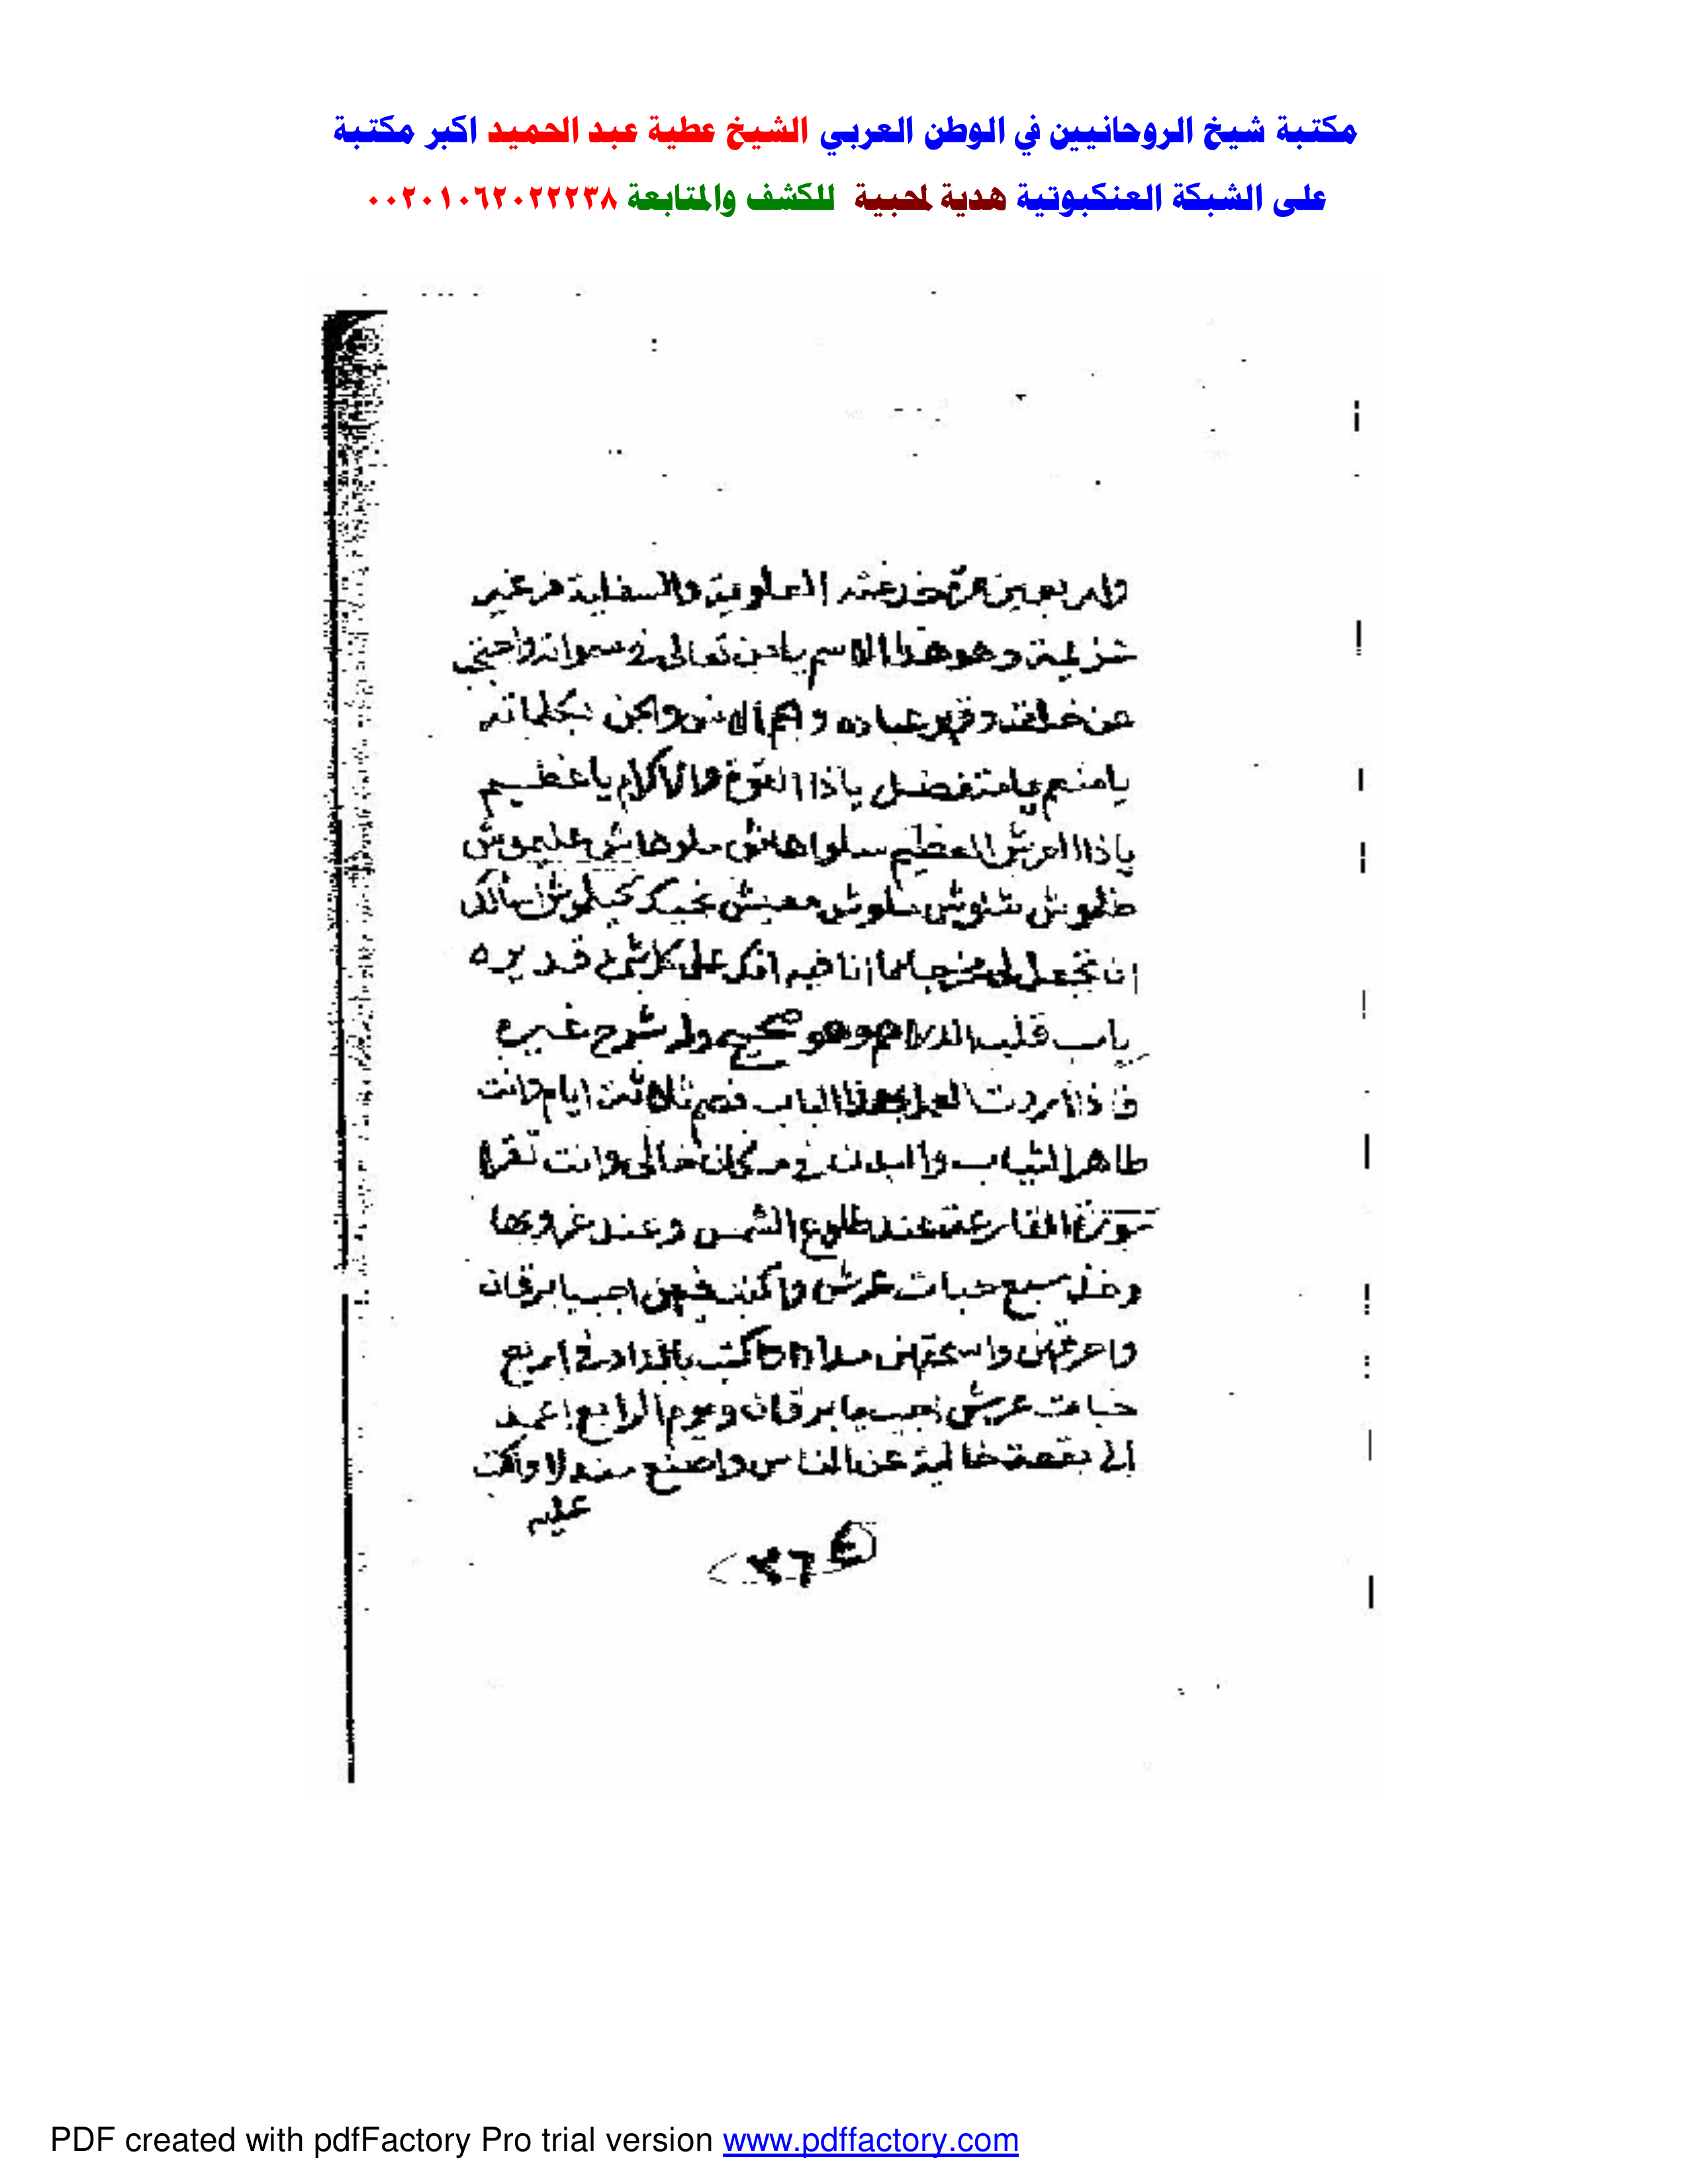 مكتبة شيخ الروحانيين في الوطن العربي الشيخ عطية عبد الحميد اكبر مكتبة
على الشبكة العنكبوتية هدية لمحبية للكشف والمتابعة ٠٠٢٠١٠٦٢٠٢٢٢٣٨
العلوية والسفلية من غير
وهو هذا الاسم يا من تعالى في سمواته واحتجى
عن خلقه وقهر عباده والجن بكلماته
يا منعم يا متفضل يا ذا العزة والاكرام يا عظيم
يا ذا العرش العظيم
ان تجعل لى مخرجا مما انا فيه انك على كل شىء قدير ه
باب قلب الدراهم وهو صحيح وله شرح غيره
فاذا اردت العمل بهذا الباب فصم ثلاثة ايام وانت
طاهر الثياب والبدن في مكان خالى وانت تقرا
سورة القارعة عند طلوع الشمس وعند غروبها
وخذ سبع حبات واكتب فيهن اجب يا برقان
واحرقهن واسحقهن اكتب اربع
حبات اجب يا برقان ويوم الرابع اعمد
الى بقعة خالية عن الناس واصنع مندلا واكتب
عليه
PDF created with pdfFactory Pro trial version www.pdffactory.com